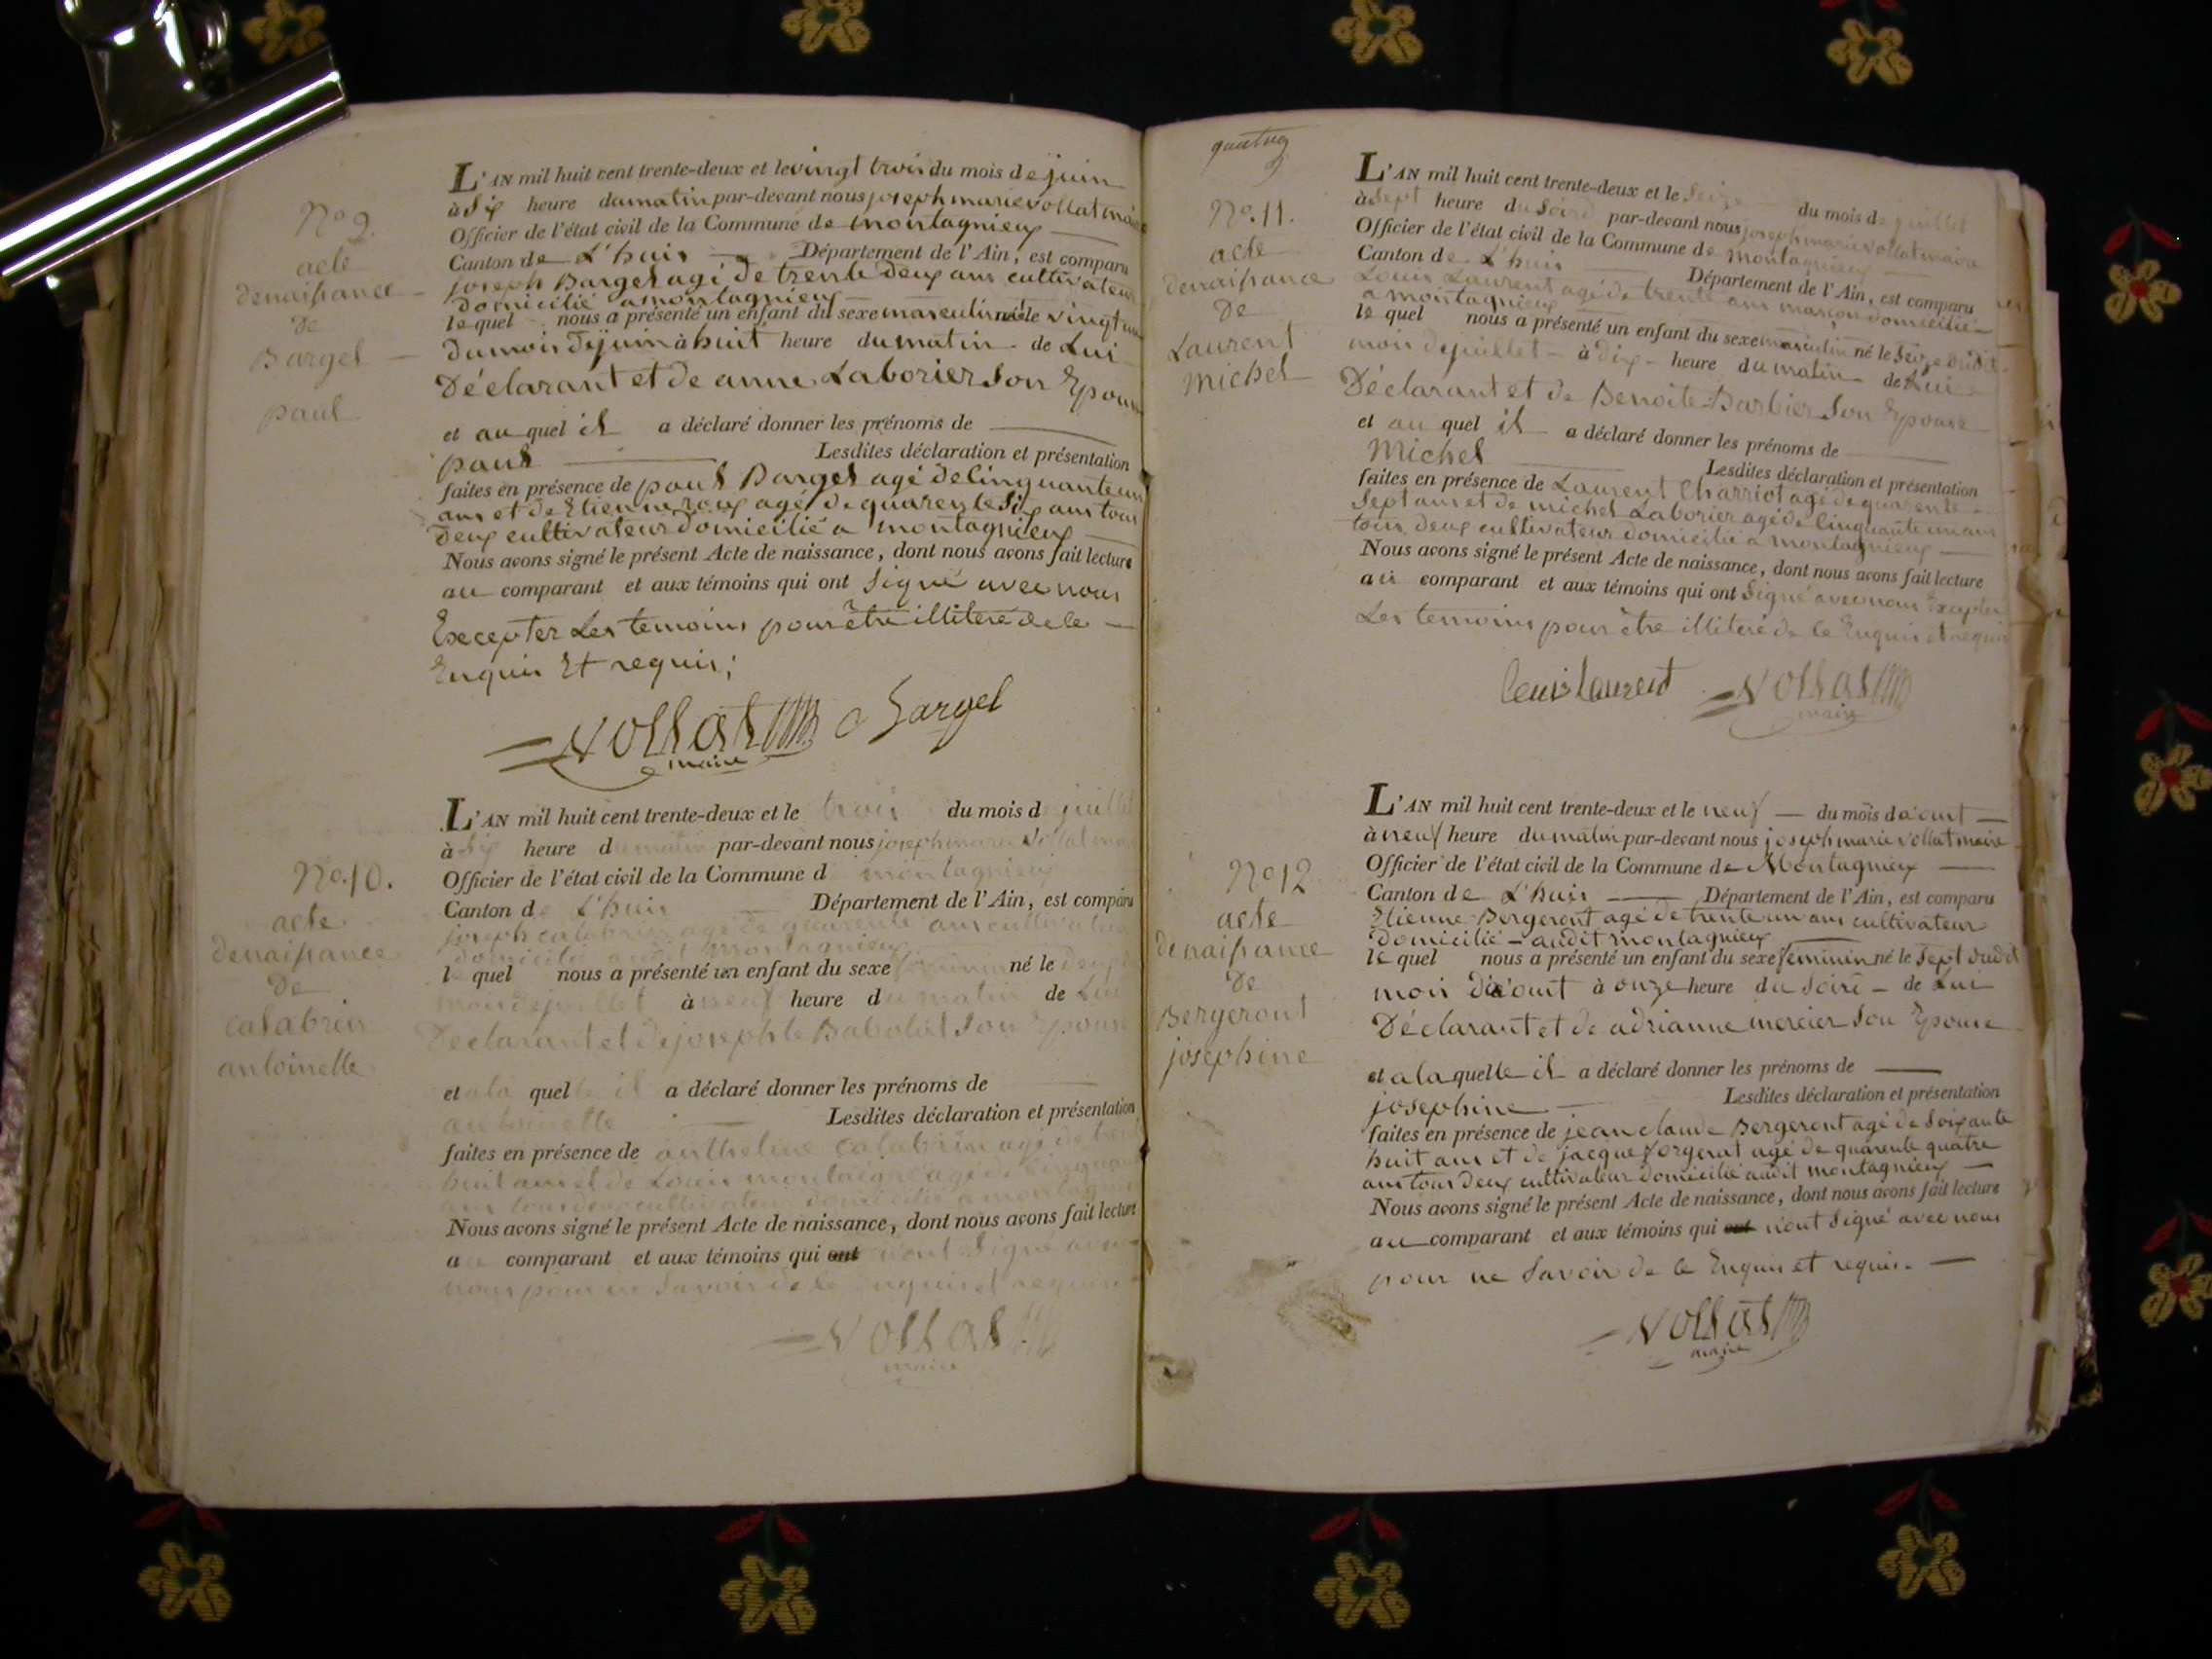 No 9.
acte
denaissance
De
Bargel
paul
L'AN mil huit cent trente-deux et le vingt trois du mois de juin
à Six heure du matin par-devant nous joseph marie vollat maire
Officier de l'état civil de la Commune de montagnieux
Canton de L'huis Département de l'Ain, est comparu
joseph Bargel agé de trente Deux ans cultivateur
domicilié a montagnieux
lequel nous a présenté un enfant du sexe masculin né le vingt un
du mois De juin à huit heure du matin de Lui
Déclarant et de anne Laborier Son Epouse
et au quel il a déclaré donner les prénoms de
paul Lesdites déclaration et présentation
faites en présence de paul Bargel agé de Cinquante un
ans et de Etienne roux agé de quarente Six ans tous
deux cultivateur domicilié a montagnieux
Nous avons signé le présent Acte de naissance, dont nous avons fait lecture
au comparant et aux témoins qui ont Signé avec nous
Excepter Les temoins pour être illiteré de le
Enquis Et requis;
Vollat Bargel
maire
No. 10.
acte
denaissance
De
Calabrin
antoinette
L'AN mil huit cent trente-deux et le trois du mois de juillet
à Six heure du matin par-devant nous joseph marie Vollat maire
Officier de l'état civil de la Commune de montagnieux
Canton de L'huis Département de l'Ain, est comparu
joseph calabrin agé de quarente ans cultivateur
domicilié audit montagnieux
lequel nous a présenté un enfant du sexe feminin né le Deux
mois de juillet à neuf heure du matin de Lui
Déclarant et de josephte Babolat Son Epouse
et a la quelle il a déclaré donner les prénoms de
antoinette Lesdites déclaration et présentation
faites en présence de anthelme Calabrin agé de
huit ans et de Louis montagne agé de Cinquante
ans tous deux cultivateur domicilié a montagnieux
Nous avons signé le présent Acte de naissance, dont nous avons fait lecture
au comparant et aux témoins qui ont n'ont Signé avec
nous pour ne Savoir de le Enquis et requis
Vollat
maire
No. 11.
acte
denaissance
De
Laurent
Michel
L'AN mil huit cent trente-deux et le Seize du mois de juillet
à Sept heure du Soire par-devant nous joseph marie vollat maire
Officier de l'état civil de la Commune de Montagnieux
Canton de L'huis Département de l'Ain, est comparu
Louis Laurent agé de trente ans maçon domicilié
a montagnieux
lequel nous a présenté un enfant du sexe masculin né le Seize dudit
mois de juillet à Dix heure du matin de Lui
Déclarant et de Benoite Barbier Son Epouse
et au quel il a déclaré donner les prénoms de
Michel Lesdites déclaration et présentation
faites en présence de Laurent Charriot agé de quarente
Sept ans et de michel Laborier agé de Cinquante un ans
tous deux cultivateur domicilié a montagnieux
Nous avons signé le présent Acte de naissance, dont nous avons fait lecture
au comparant et aux témoins qui ont Signé avec nous Excepter
Les temoins pour être illiteré de le Enquis et requis
Louis Laurent Vollat
maire
No 12
acte
denaissance
De
Bergeront
josephine
L'AN mil huit cent trente-deux et le neuf du mois d'aout
à neuf heure du matin par-devant nous joseph marie vollat maire
Officier de l'état civil de la Commune de Montagnieux
Canton de L'huis Département de l'Ain, est comparu
Etienne Bergeront agé de trente un ans cultivateur
domicilié audit montagnieux
lequel nous a présenté un enfant du sexe feminin né le Sept dudit
mois d'aout à onze heure du Soire de Lui
Déclarant et de adrianne mercier Son Epouse
et a la quelle il a déclaré donner les prénoms de
josephine Lesdites déclaration et présentation
faites en présence de jean claude Bergeront agé de Soixante
huit ans et de jacque Forgerat agé de quarente quatre
ans tous deux cultivateur domicilié audit montagnieux
Nous avons signé le présent Acte de naissance, dont nous avons fait lecture
au comparant et aux témoins qui ont n'ont Signé avec nous
pour ne Savoir de le Enquis et requis.
Vollat
maire